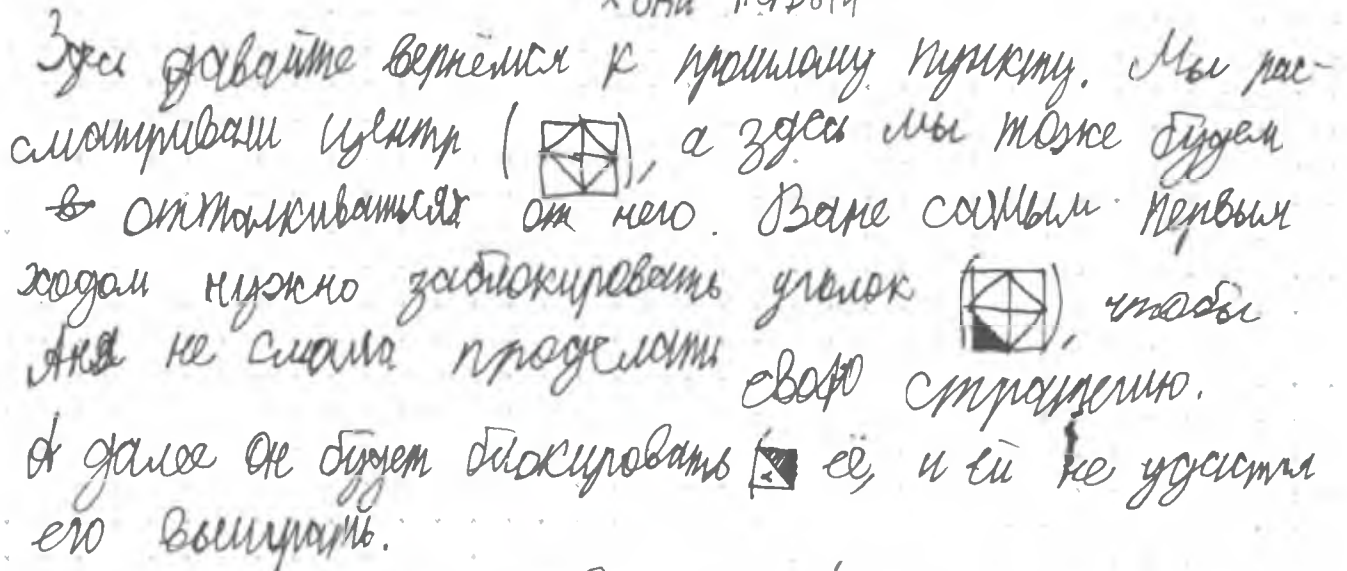 Здесь давайте вернёмся к прошлому пункту. Мы рас-
сматривали центр ( ), а здесь мы тоже будем
отталкиваться от него. Ване самым первым
ходом нужно заблокировать уголок ( ), чтобы
Аня не смогла проделать свою стратегию.
А далее он будет блокировать её, и ей не удастся
его выиграть.